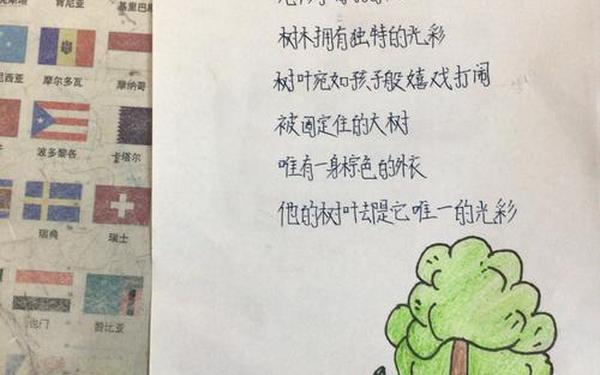 肯尼亚
基里巴斯
尼西亚
摩尔多瓦
摩纳哥
波多黎各
卡塔尔
瑞典
瑞士
也门
赞比亚
树木拥有独特的光彩
树叶宛如孩子般嬉戏打闹
被固定住的大树
唯有一身棕色的外衣
他的树叶却是它唯一的光彩